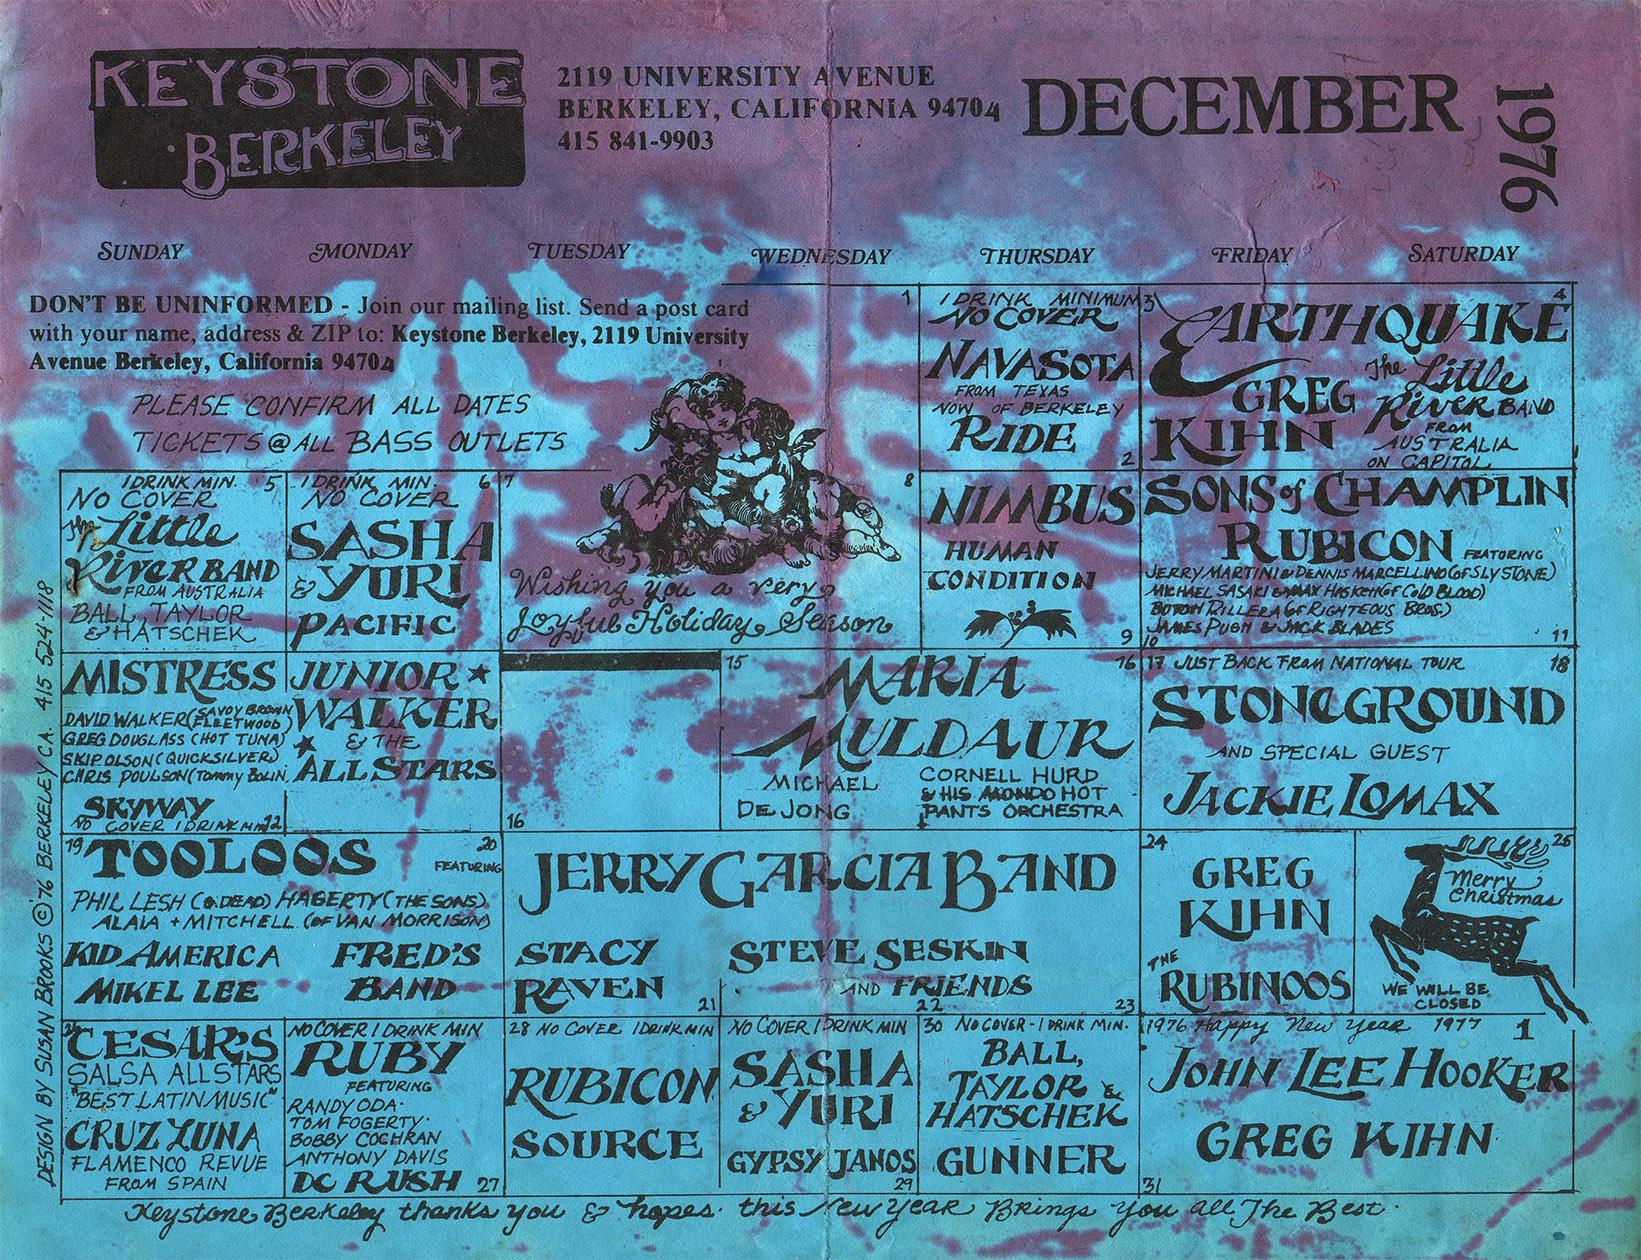 KEYSTONE
BERKELEY
2119 UNIVERSITY AVENUE
BERKELEY, CALIFORNIA 94704
415 841-9903
DECEMBER
1976
SUNDAY MONDAY TUESDAY WEDNESDAY THURSDAY FRIDAY SATURDAY
DON'T BE UNINFORMED - Join our mailing list. Send a post card
with your name, address & ZIP to: Keystone Berkeley, 2119 University
Avenue Berkeley, California 94704
PLEASE CONFIRM ALL DATES
TICKETS @ ALL BASS OUTLETS
1
1 DRINK MINIMUM
NO COVER
NAVASOTA
FROM TEXAS
NOW OF BERKELEY
RIDE
2
3 4
EARTHQUAKE
GREG
KIHN
The Little
River BAND
FROM
AUSTRALIA
ON CAPITOL
1 DRINK MIN. 5
NO COVER
The Little
RIVER BAND
FROM AUSTRALIA
BALL, TAYLOR
& HATSCHEK
1 DRINK MIN. 6
NO COVER
SASHA
& YURI
PACIFIC
7 8
Wishing you a very
Joyful Holiday Season
NIMBUS
HUMAN
CONDITION
9
SONS of CHAMPLIN
RUBICON FEATURING
JERRY MARTINI & DENNIS MARCELLINO (of SLY STONE)
MICHAEL SASAKI & MAX HASKENS (of COLD BLOOD)
(of RIGHTEOUS BROS.)
JAMES PUGH & JACK BLADES
10 11
MISTRESS
DAVID WALKER (SAVOY BROWN
FLEETWOOD)
GREG DOUGLASS (HOT TUNA)
SKIP OLSON (QUICKSILVER)
CHRIS POULSON (Tommy BOLIN
SKYWAY
NO COVER 1 DRINK MIN 12
JUNIOR
WALKER
& THE
ALL STARS
16
15 16
MARIA
MULDAUR
MICHAEL
DE JONG
CORNELL HURD
& HIS MONDO HOT
PANTS ORCHESTRA
17 JUST BACK FROM NATIONAL TOUR 18
STONEGROUND
AND SPECIAL GUEST
JACKIE LOMAX
19 20
TOOLOOS FEATURING
PHIL LESH (G. DEAD) HAGERTY (THE SONS)
ALAIA + MITCHELL (OF VAN MORRISON)
KID AMERICA
MIKEL LEE
FRED'S
BAND
JERRY GARCIA BAND
STACY
RAVEN
21
STEVE SESKIN
AND FRIENDS
22 23
24
GREG
KIHN
THE
RUBINOOS
25
Merry
Christmas
WE WILL BE
CLOSED
CESAR'S
SALSA ALLSTARS
"BEST LATIN MUSIC"
CRUZ LUNA
FLAMENCO REVUE
FROM SPAIN
NO COVER 1 DRINK MIN
RUBY
FEATURING
RANDY ODA·
TOM FOGERTY·
BOBBY COCHRAN
ANTHONY DAVIS
DC RUSH 27
28 NO COVER 1 DRINK MIN
RUBICON
SOURCE
NO COVER 1 DRINK MIN
SASHA
& YURI
GYPSY JANOS
29
30 NO COVER - 1 DRINK MIN.
BALL,
TAYLOR &
HATSCHEK
GUNNER
1976 Happy New Year 1977 1
JOHN LEE HOOKER
GREG KIHN
31
Keystone Berkeley thanks you & hopes this New Year Brings You all The Best.
DESIGN BY SUSAN BROOKS © '76 BERKELEY CA. 415 524-1118